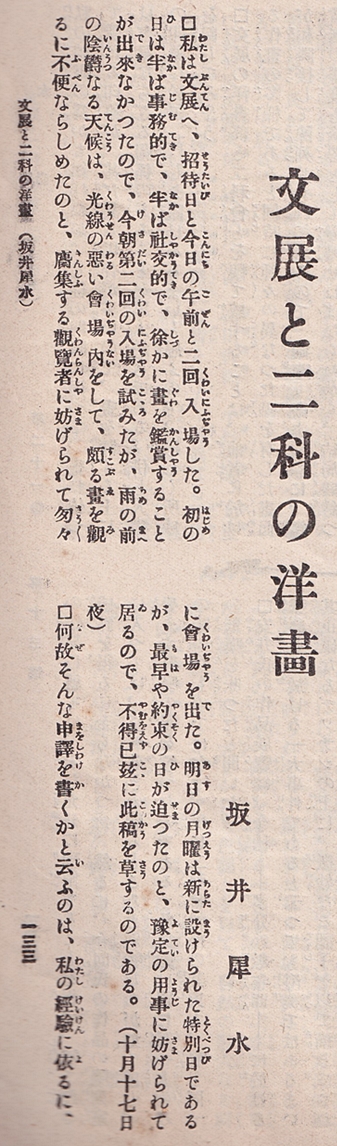 文展と二科の洋畫
坂井犀水
□私は文展へ、招待日と今日の午前と二回入場した。初の
日は半ば事務的で、半ば社交的で、徐かに畫を鑑賞すること
が出來なかつたので、今朝第二回の入場を試みたが、雨の前
の陰欝なる天候は、光線の惡い會場內をして、頗る畫を觀
るに不便ならしめたのと、麕集する觀覽者に妨げられて匆々
に會場を出た。明日の月曜は新に設けられた特別日である
が、最早や約束の日が迫つたのと、豫定の用事に妨げられて
居るので、不得已玆に此稿を草するのである。（十月十七日
夜）
□何故そんな申譯を書くかと云ふのは、私の經驗に依るに、
文展と二科の洋畫（坂井犀水）
一三三